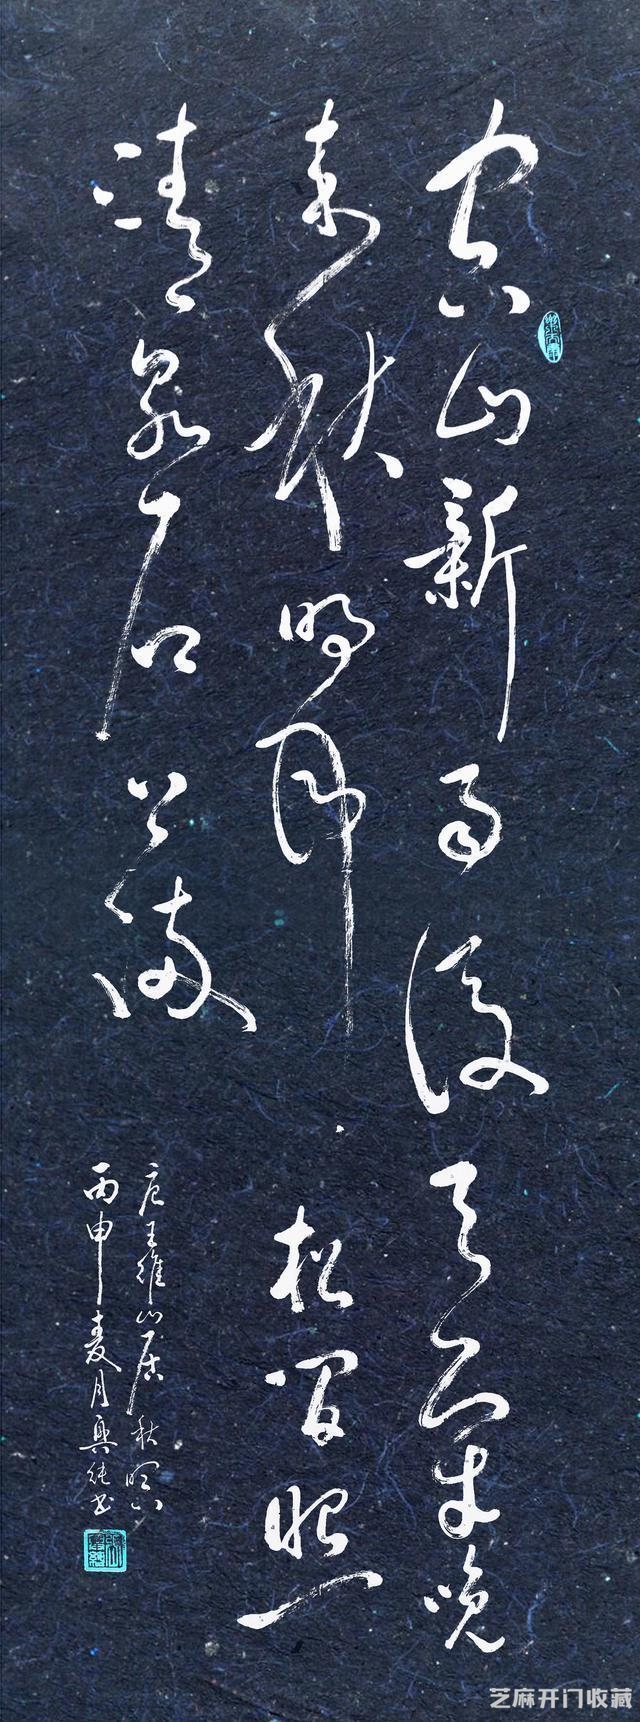 空山新雨後天氣晚
来秋明月松間照
清泉石上流
唐王維山居秋暝
丙申麦月興純书
芝麻开门收藏